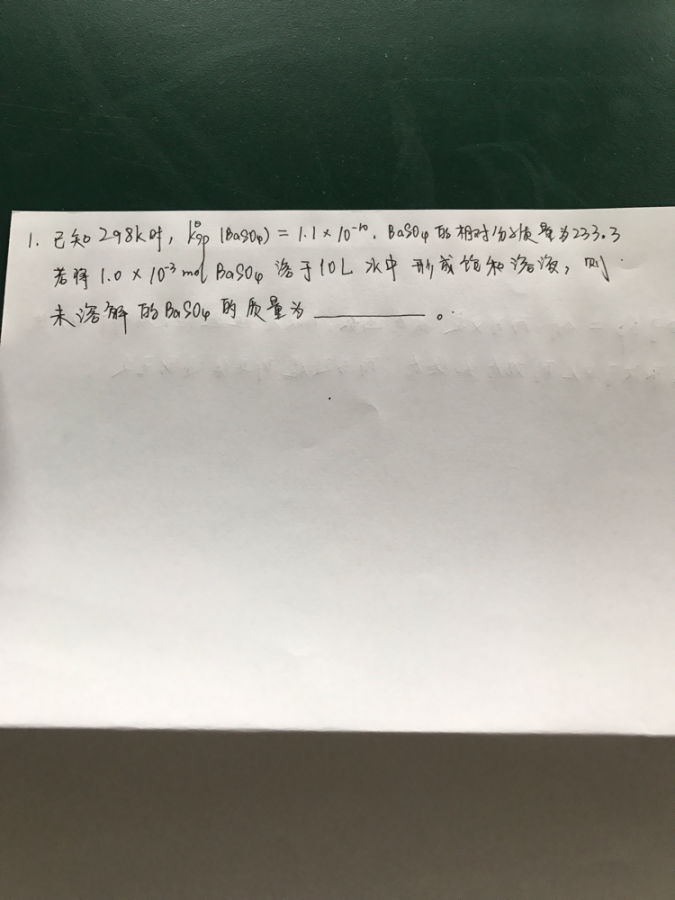 1. 已知298K时, Kθsp (BaSO4) = 1.1 × 10-10. BaSO4的相对分子质量为233.3
若将1.0 × 10-3 mol BaSO4 溶于10L 水中 形成饱和溶液, 则
未溶解的BaSO4的质量为 ________ 。